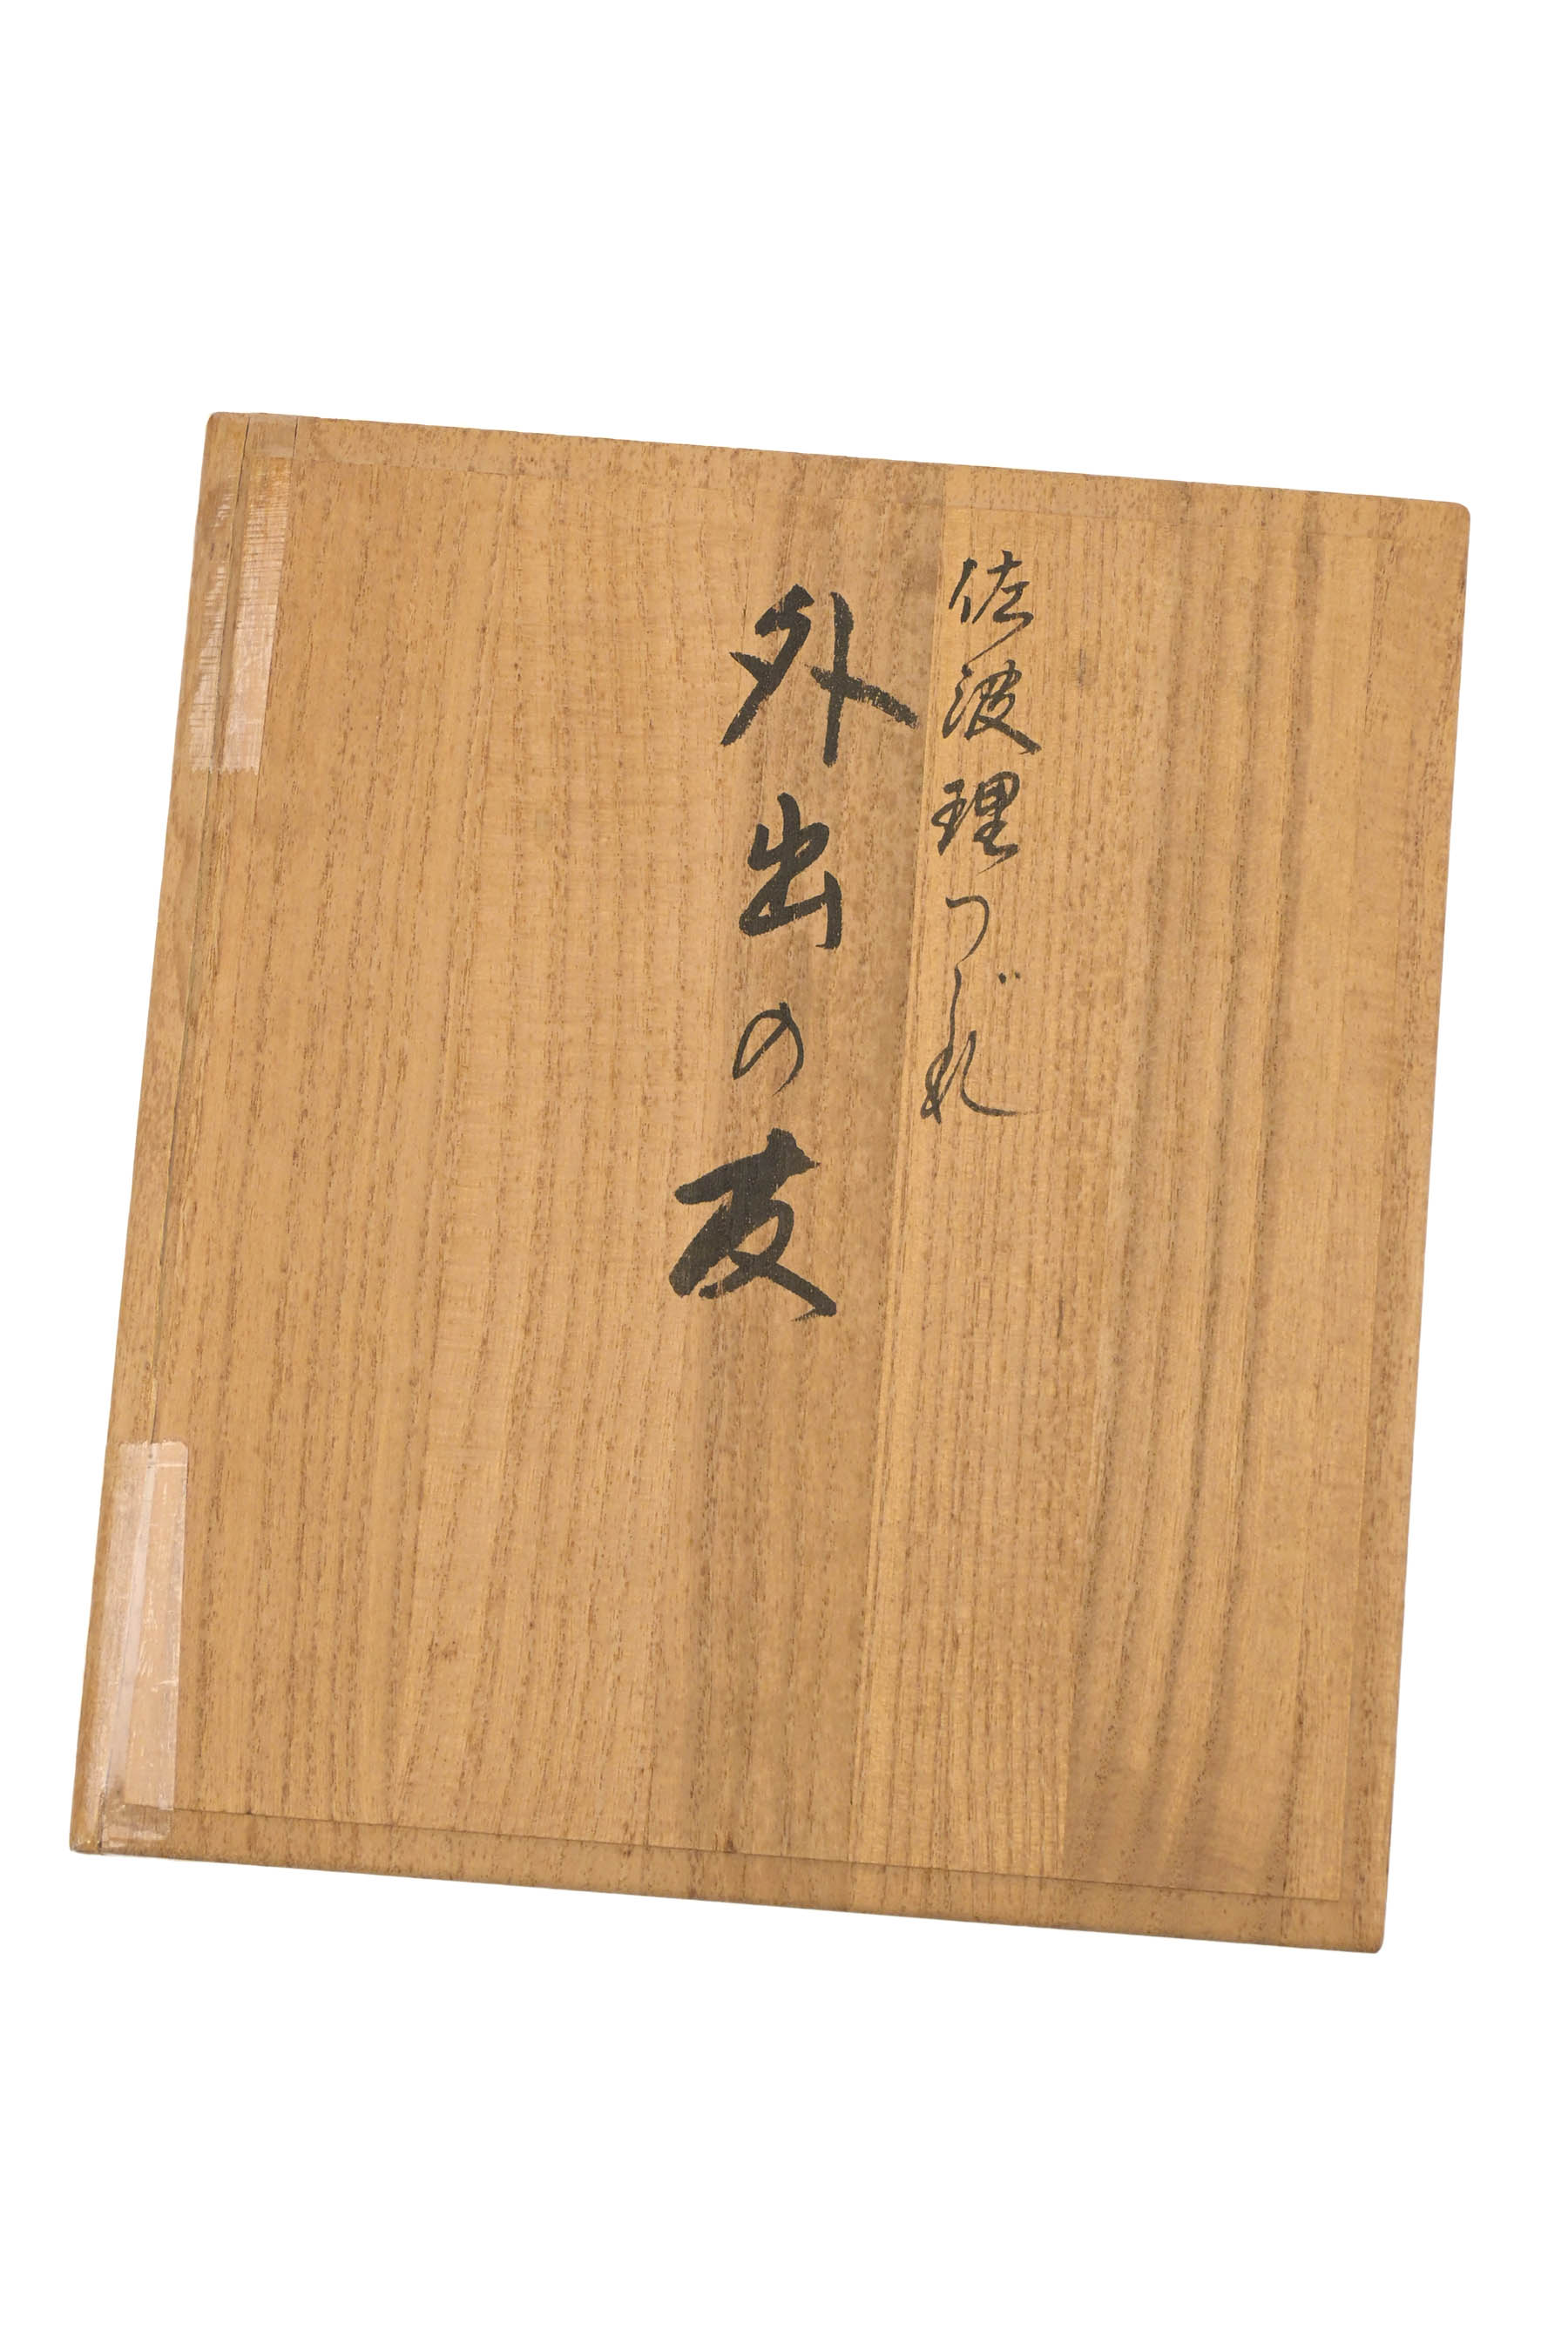 佐波理つづれ
外出の友